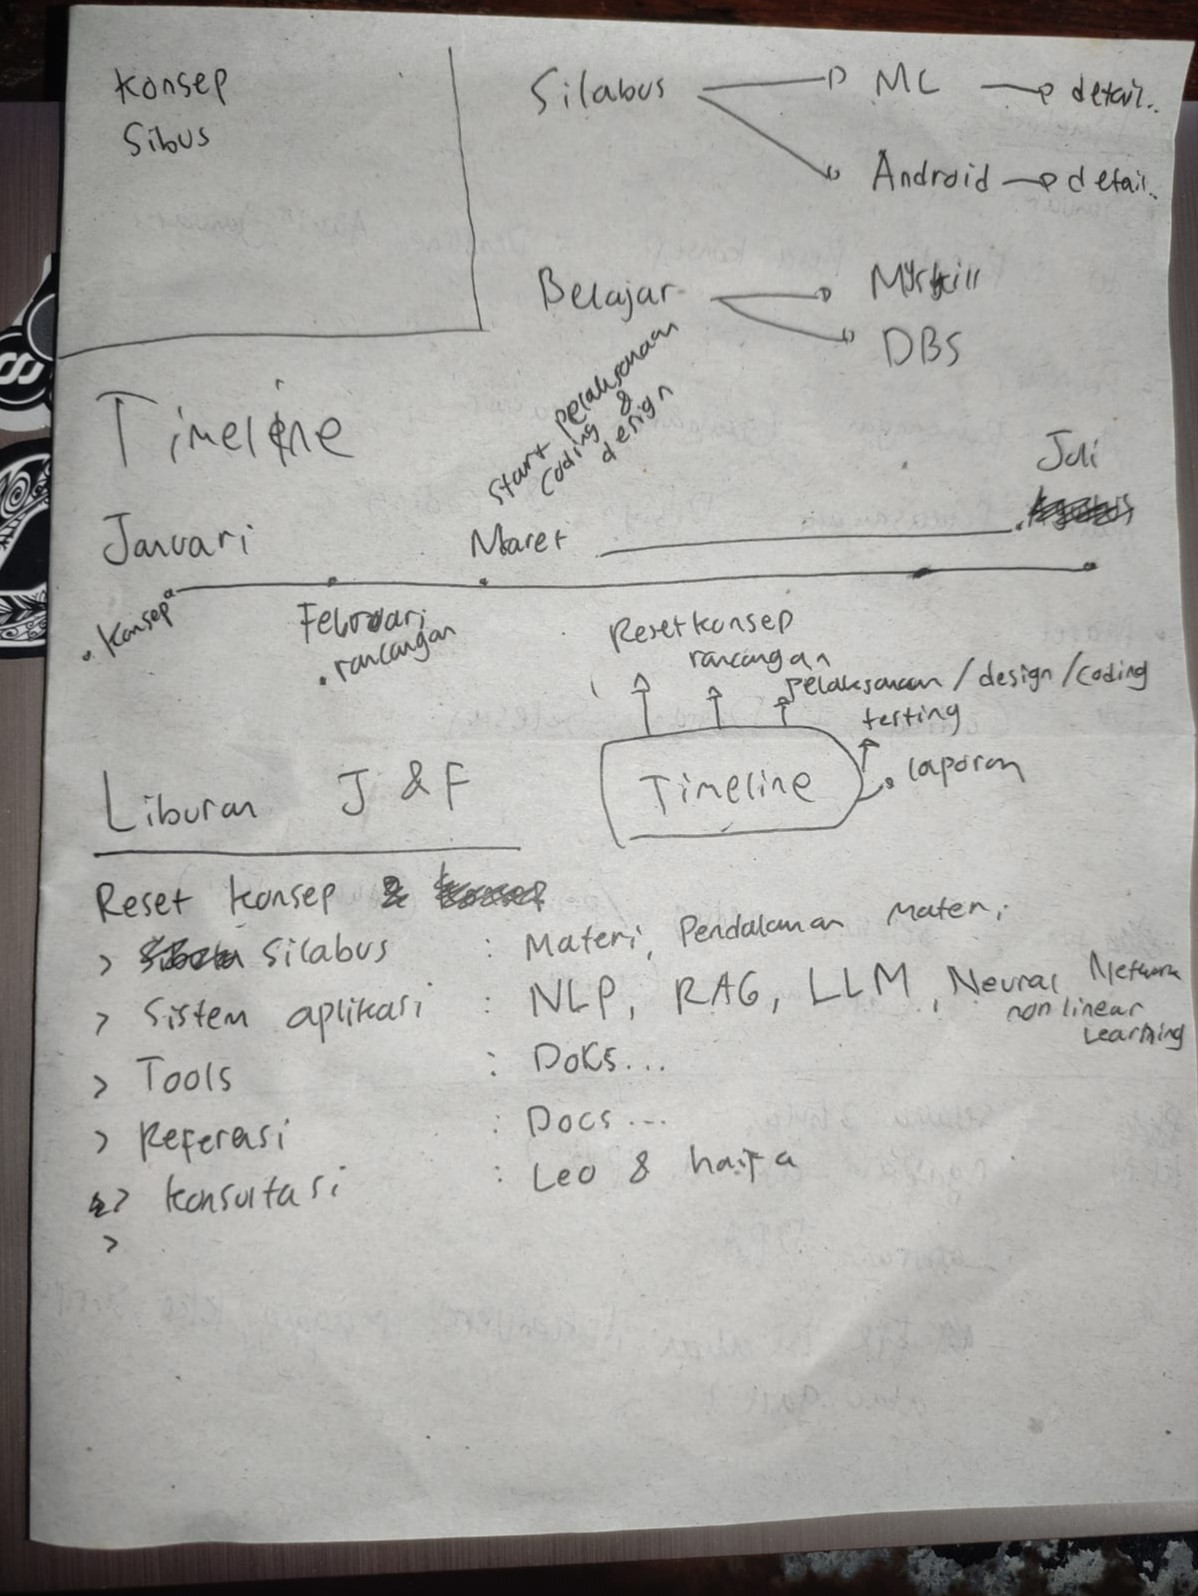 Konsep
Sibus
Silabus
ML
detail..
Android
detail..
Belajar
Myskill
DBS
Timeline
start pelaksanaan
coding &
design
Januari
Maret
Juli
Konsep
Februari
rancangan
Reset konsep
rancangan
pelaksanaan / design / coding
testing
laporan
Timeline
Liburan J & F
Reset konsep
> Silabus : Materi, Pendalaman Materi
> Sistem aplikasi : NLP, RAG, LLM, Neural Network
non linear
Learning
> Tools : Doks...
> Referasi : Docs...
> Konsultasi : Leo & haifa
>